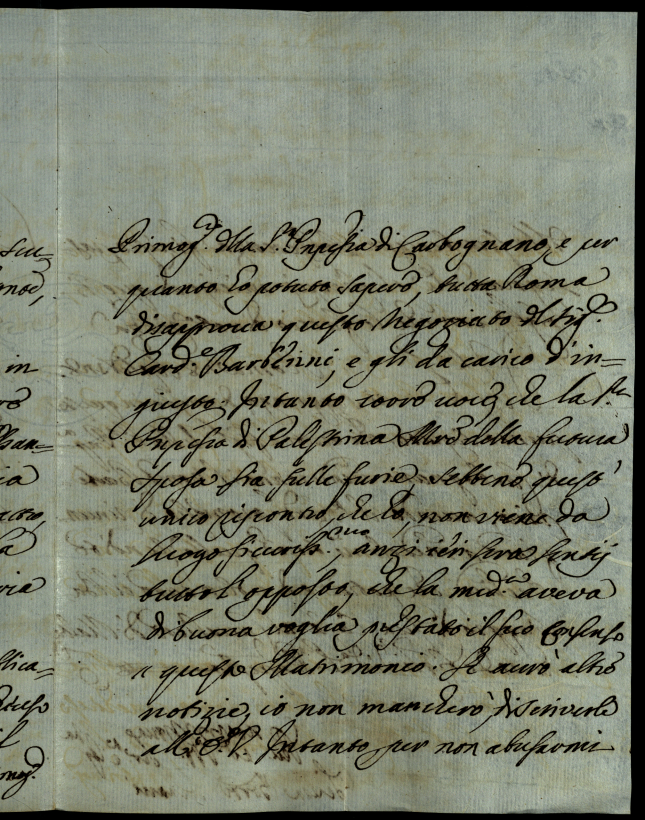 Primog.ta della S.ra Pnpessa di Carbognano, e per
quanto ho potuto sapere, tutta Roma
disapprova questo Negoziato del Sig.r
Card.e Barberini, e gli da carico d'in=
giusto. Intanto corre voce che la S.ra
Pnpessa di Palestrina Madre della futura
Sposa sia sulle furie. sebbene quest'
unico riscontro, che ho, non viene da
luogo sicuriss.mo, anzi ieri sera sentij
tutto l'opposto, che la med.ma aveva
di buona voglia prestato il suo consenso
a questo Matrimonio. Se avrò altre
notizie, io non mancherò, di scriverle
all' S.V. Intanto per non abusarmi
scu=
in
ia
la
via
blica=
il